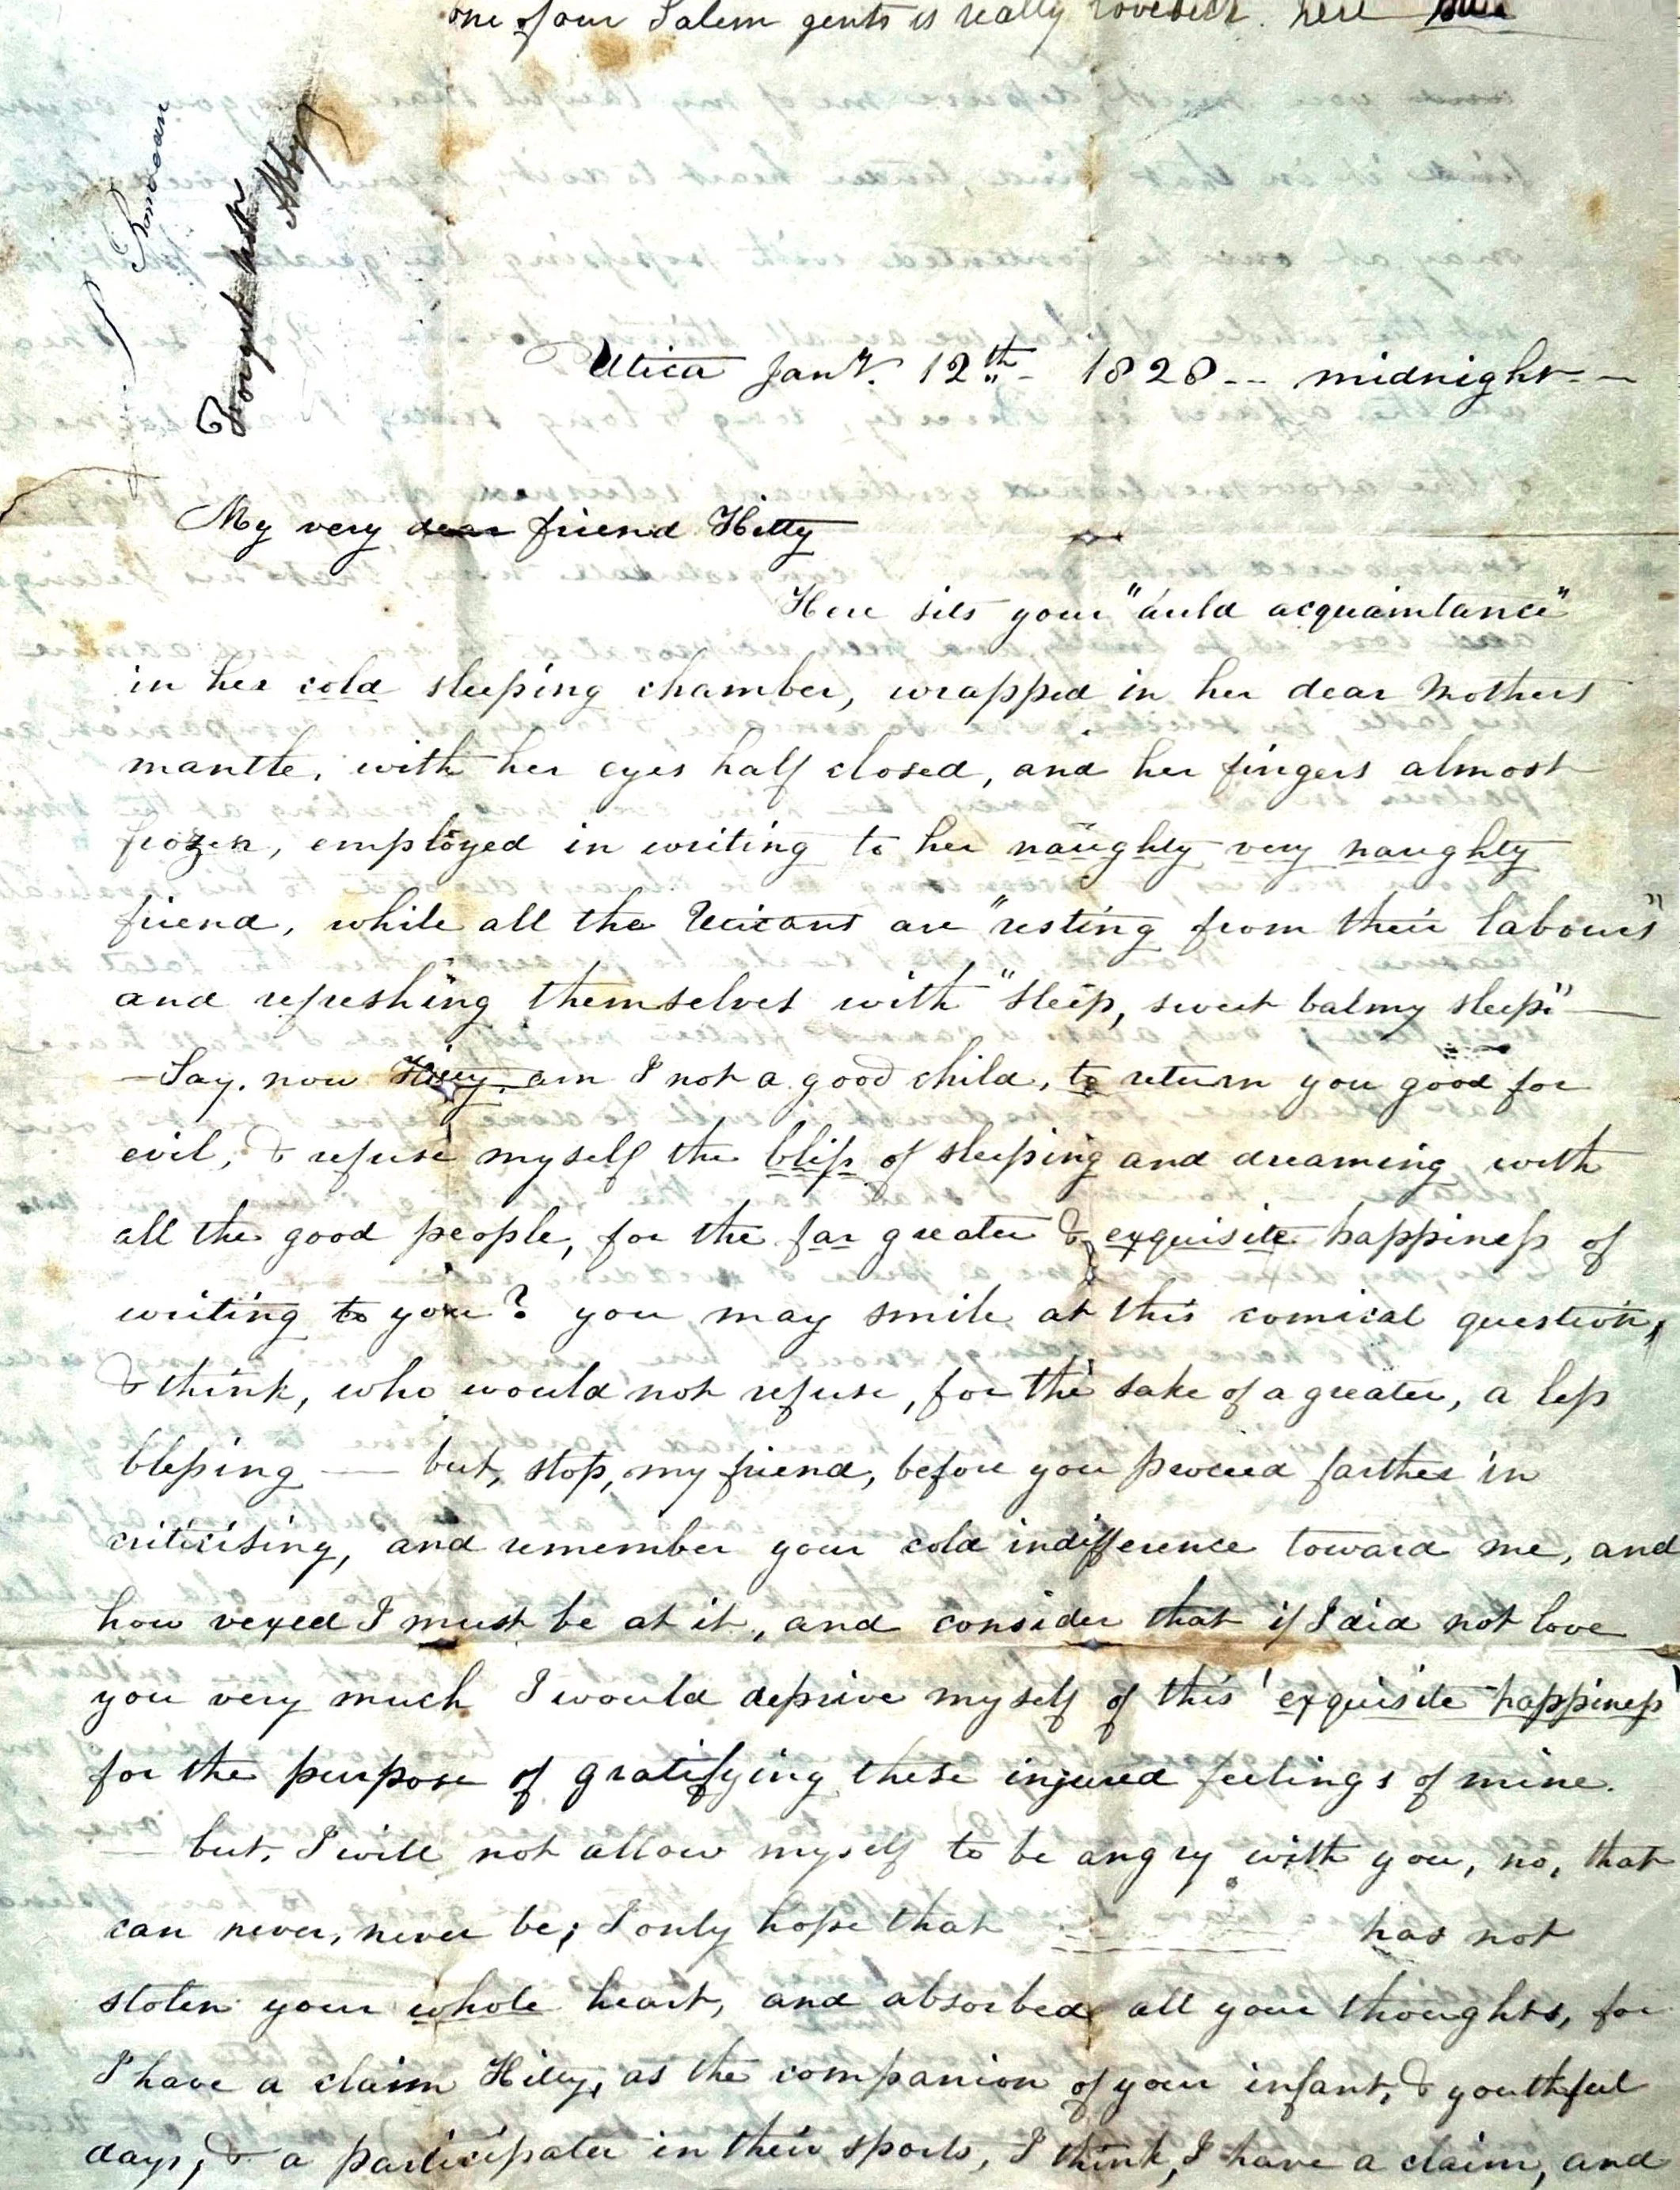 one of our Salem gents is really here
Abby
Utica Jany. 12th - 1828 -- midnight --
My very dear friend Hitty
Here sits your "auld acquaintance"
in her cold sleeping chamber, wrapped in her dear Mothers
mantle, with her eyes half closed, and her fingers almost
frozen, employed in writing to her naughty very naughty
friend, while all the Uticans are "resting from their labours"
and refreshing themselves with "sleep, sweet balmy sleep" —
— Say, now Hitty, am I not a good child, to return you good for
evil, & refuse myself the bliss of sleeping and dreaming with
all the good people, for the far greater & exquisite happiness of
writing to you? you may smile at this comical question,
& think, who would not refuse, for the sake of a greater, a less
blessing — but, stop, my friend, before you proceed farther in
criticising, and remember your cold indifference toward me, and
how vexed I must be at it, and consider that if I did not love
you very much I would deprive myself of this 'exquisite happiness'
for the purpose of gratifying these injured feelings of mine.
— but, I will not allow myself to be angry with you, no, that
can never, never be; I only hope that has not
stolen your whole heart, and absorbed all your thoughts, for
I have a claim Hitty, as the companion of your infant, & youthful
days, & a participater in their sports, I think, I have a claim, and